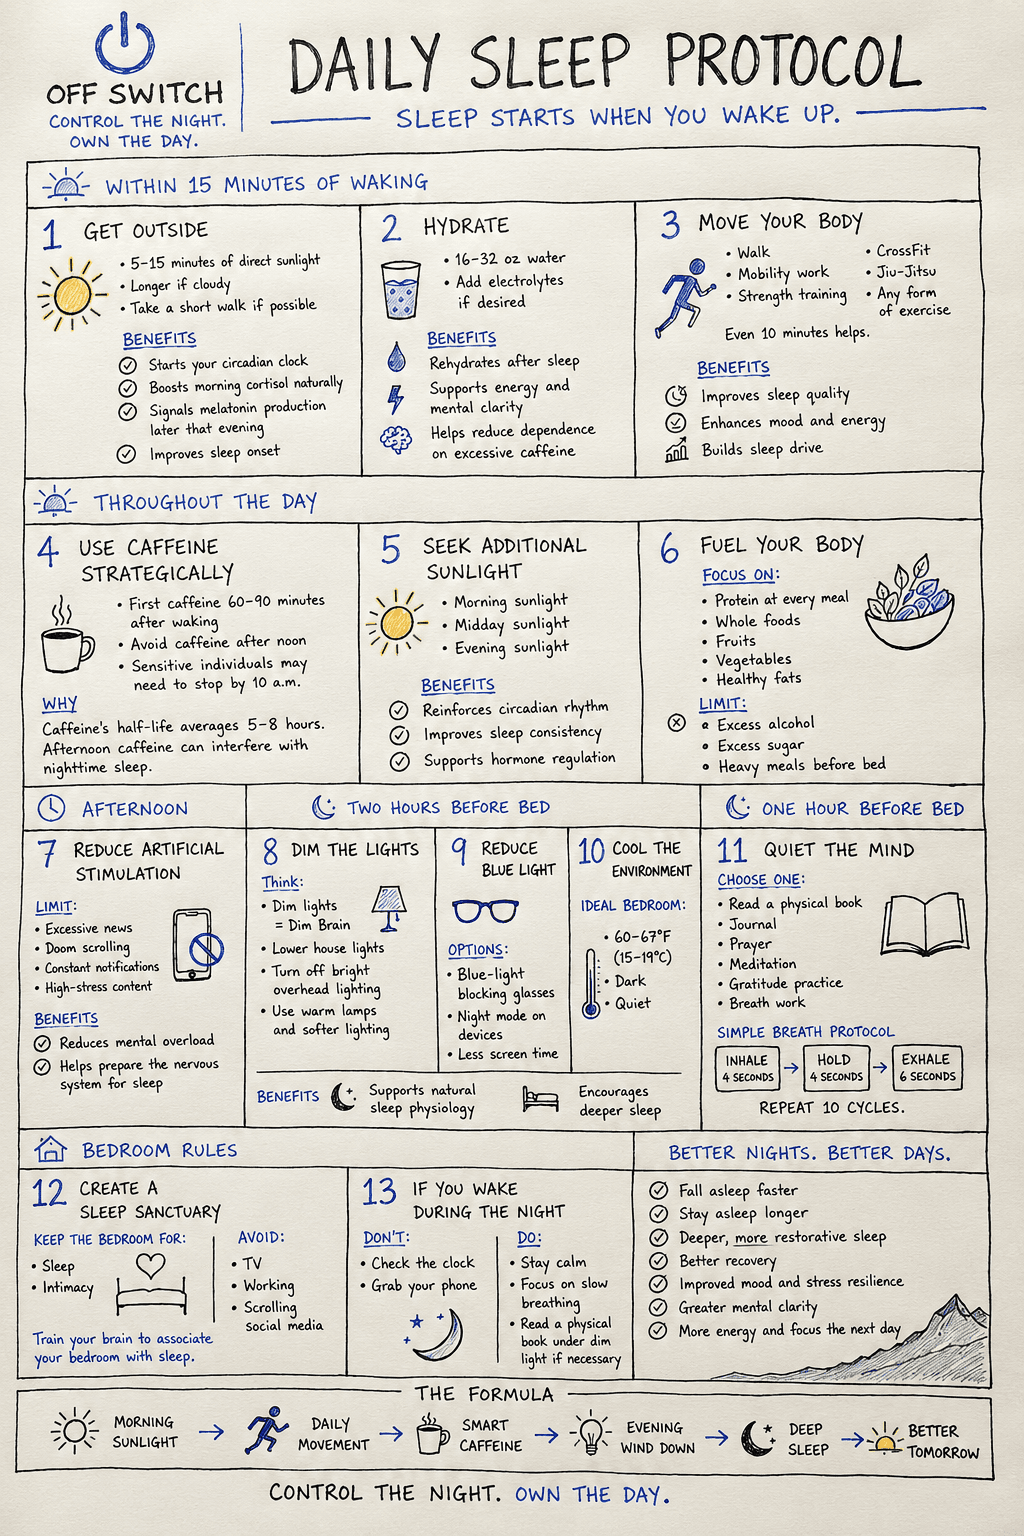 OFF SWITCH
CONTROL THE NIGHT.
OWN THE DAY.
DAILY SLEEP PROTOCOL
SLEEP STARTS WHEN YOU WAKE UP.
WITHIN 15 MINUTES OF WAKING
1 GET OUTSIDE
• 5-15 minutes of direct sunlight
• Longer if cloudy
• Take a short walk if possible
BENEFITS
Starts your circadian clock
Boosts morning cortisol naturally
Signals melatonin production
later that evening
Improves sleep onset
2 HYDRATE
• 16-32 oz water
• Add electrolytes
if desired
BENEFITS
Rehydrates after sleep
Supports energy and
mental clarity
Helps reduce dependence
on excessive caffeine
3 MOVE YOUR BODY
• Walk
• Mobility work
• Strength training
• CrossFit
• Jiu-Jitsu
• Any form
of exercise
Even 10 minutes helps.
BENEFITS
Improves sleep quality
Enhances mood and energy
Builds sleep drive
THROUGHOUT THE DAY
4 USE CAFFEINE
STRATEGICALLY
• First caffeine 60-90 minutes
after waking
• Avoid caffeine after noon
• Sensitive individuals may
need to stop by 10 a.m.
WHY
Caffeine's half-life averages 5-8 hours.
Afternoon caffeine can interfere with
nighttime sleep.
5 SEEK ADDITIONAL
SUNLIGHT
• Morning sunlight
• Midday sunlight
• Evening sunlight
BENEFITS
Reinforces circadian rhythm
Improves sleep consistency
Supports hormone regulation
6 FUEL YOUR BODY
FOCUS ON:
• Protein at every meal
• Whole foods
• Fruits
• Vegetables
• Healthy fats
LIMIT:
• Excess alcohol
• Excess sugar
• Heavy meals before bed
AFTERNOON
7 REDUCE ARTIFICIAL
STIMULATION
LIMIT:
• Excessive news
• Doom scrolling
• Constant notifications
• High-stress content
BENEFITS
Reduces mental overload
Helps prepare the nervous
system for sleep
TWO HOURS BEFORE BED
8 DIM THE LIGHTS
Think:
• Dim lights
= Dim Brain
• Lower house lights
• Turn off bright
overhead lighting
• Use warm lamps
and softer lighting
9 REDUCE
BLUE LIGHT
OPTIONS:
• Blue-light
blocking glasses
• Night mode on
devices
• Less screen time
10 COOL THE
ENVIRONMENT
IDEAL BEDROOM:
• 60-67°F
(15-19°C)
• Dark
• Quiet
BENEFITS
Supports natural
sleep physiology
Encourages
deeper sleep
ONE HOUR BEFORE BED
11 QUIET THE MIND
CHOOSE ONE:
• Read a physical book
• Journal
• Prayer
• Meditation
• Gratitude practice
• Breath work
SIMPLE BREATH PROTOCOL
INHALE
4 SECONDS
HOLD
4 SECONDS
EXHALE
6 SECONDS
REPEAT 10 CYCLES.
BEDROOM RULES
12 CREATE A
SLEEP SANCTUARY
KEEP THE BEDROOM FOR:
• Sleep
• Intimacy
AVOID:
• TV
• Working
• Scrolling
social media
Train your brain to associate
your bedroom with sleep.
13 IF YOU WAKE
DURING THE NIGHT
DON'T:
• Check the clock
• Grab your phone
DO:
• Stay calm
• Focus on slow
breathing
• Read a physical
book under dim
light if necessary
BETTER NIGHTS. BETTER DAYS.
Fall asleep faster
Stay asleep longer
Deeper, more restorative sleep
Better recovery
Improved mood and stress resilience
Greater mental clarity
More energy and focus the next day
THE FORMULA
MORNING
SUNLIGHT
DAILY
MOVEMENT
SMART
CAFFEINE
EVENING
WIND DOWN
DEEP
SLEEP
BETTER
TOMORROW
CONTROL THE NIGHT. OWN THE DAY.